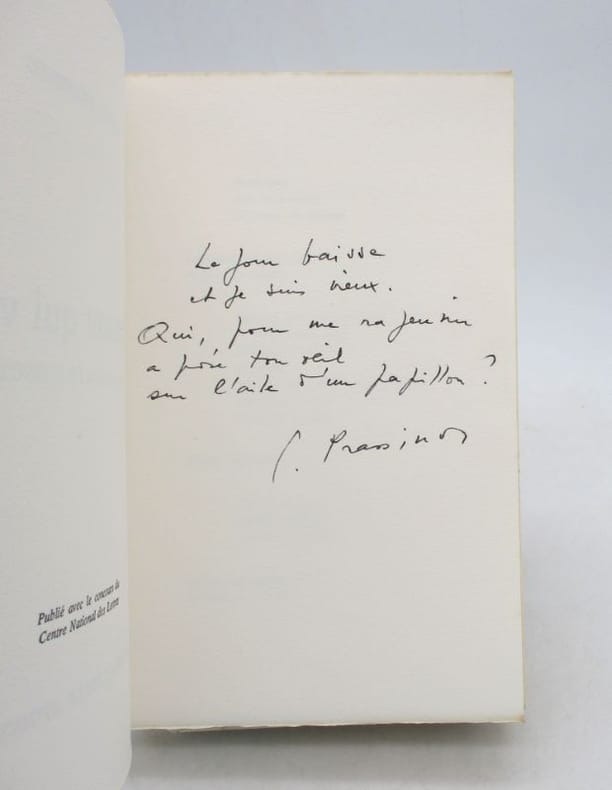 Le jour baisse
et je suis vieux.
Qui, pour me rajeunir
a posé ton œil
sur l'aile d'un papillon ?
G. Prassinos
Publié avec le concours du
Centre National des Lettres